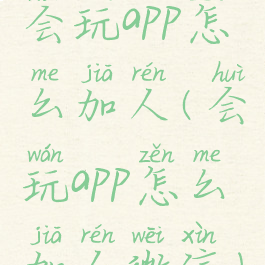 会玩app怎
me jiā rén huì
么加人(会
wán zěn me
玩app怎么
jiā rén wēi xìn
加人微信)